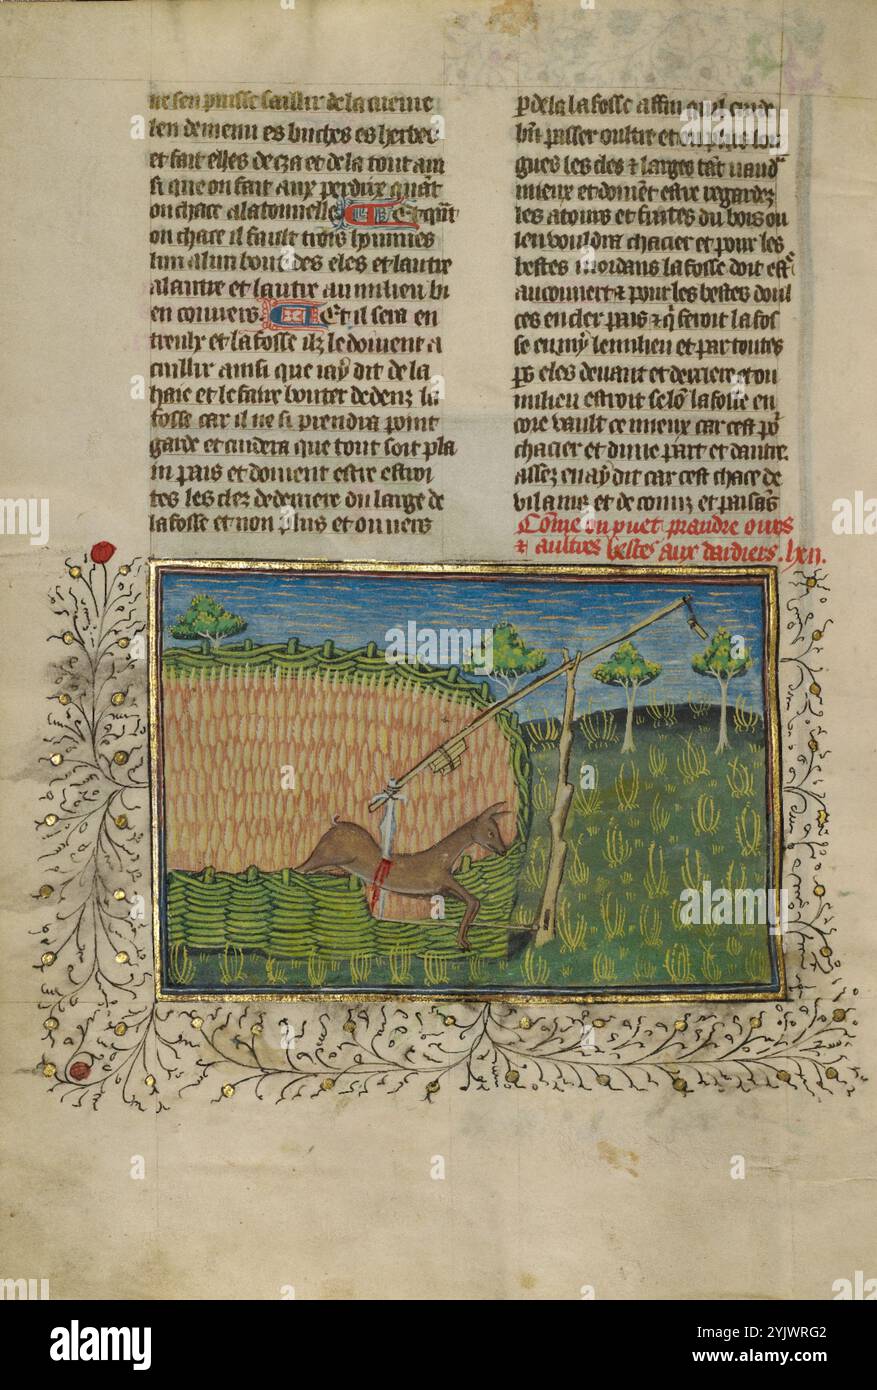 ne sen puisse saillir de la cueuue
len demenu es buches es herbes
et fait elles de cza et de la tout ain
si que on fait aux perdrix quāt
on chace a la tonnelle Et quāt
on chace il fault trois hommes
lun a lun bout des eles et lautre
a lautre et lautre au milieu bi
en couuers Et il sera en
treulx et la fosse ilz le doiuent a
cuillir ainsi que iay dit de la
haie et le faire bouter dedenz la
fosse car il ne si prendra point
garde et cuidera que tout soit pla
in pais et doiuent estre estroi
tes les elez de derriere du large de
la fosse et non plus et ou vers
p dela la fosse affin quil cuide
bn̄ passer oultre et ou plus lon
gues les eles et larges tāt vauldͬ
mieux et doiuēt estre regardez
les atours et fuites du bois ou
len vouldra chacier et pour les
bestes mordans la fosse doit estͬ
au couuert et pour les bestes doul
ces en cler pais et q̄ seroit la fos
se en my le milieu et par toutes
ps eles deuant et derriere et ou
milieu estroit selō la fosse en
core vault ce mieux car cest pō
chacier et dune part et dautre.
assez en ay dit car cest chace de
vilains et de comūs et paisās
Cōme on puet prandre ours
et autres bestes aux dardiers. lxii.
alamy
Image ID: 2YJWRG2
www.alamy.com